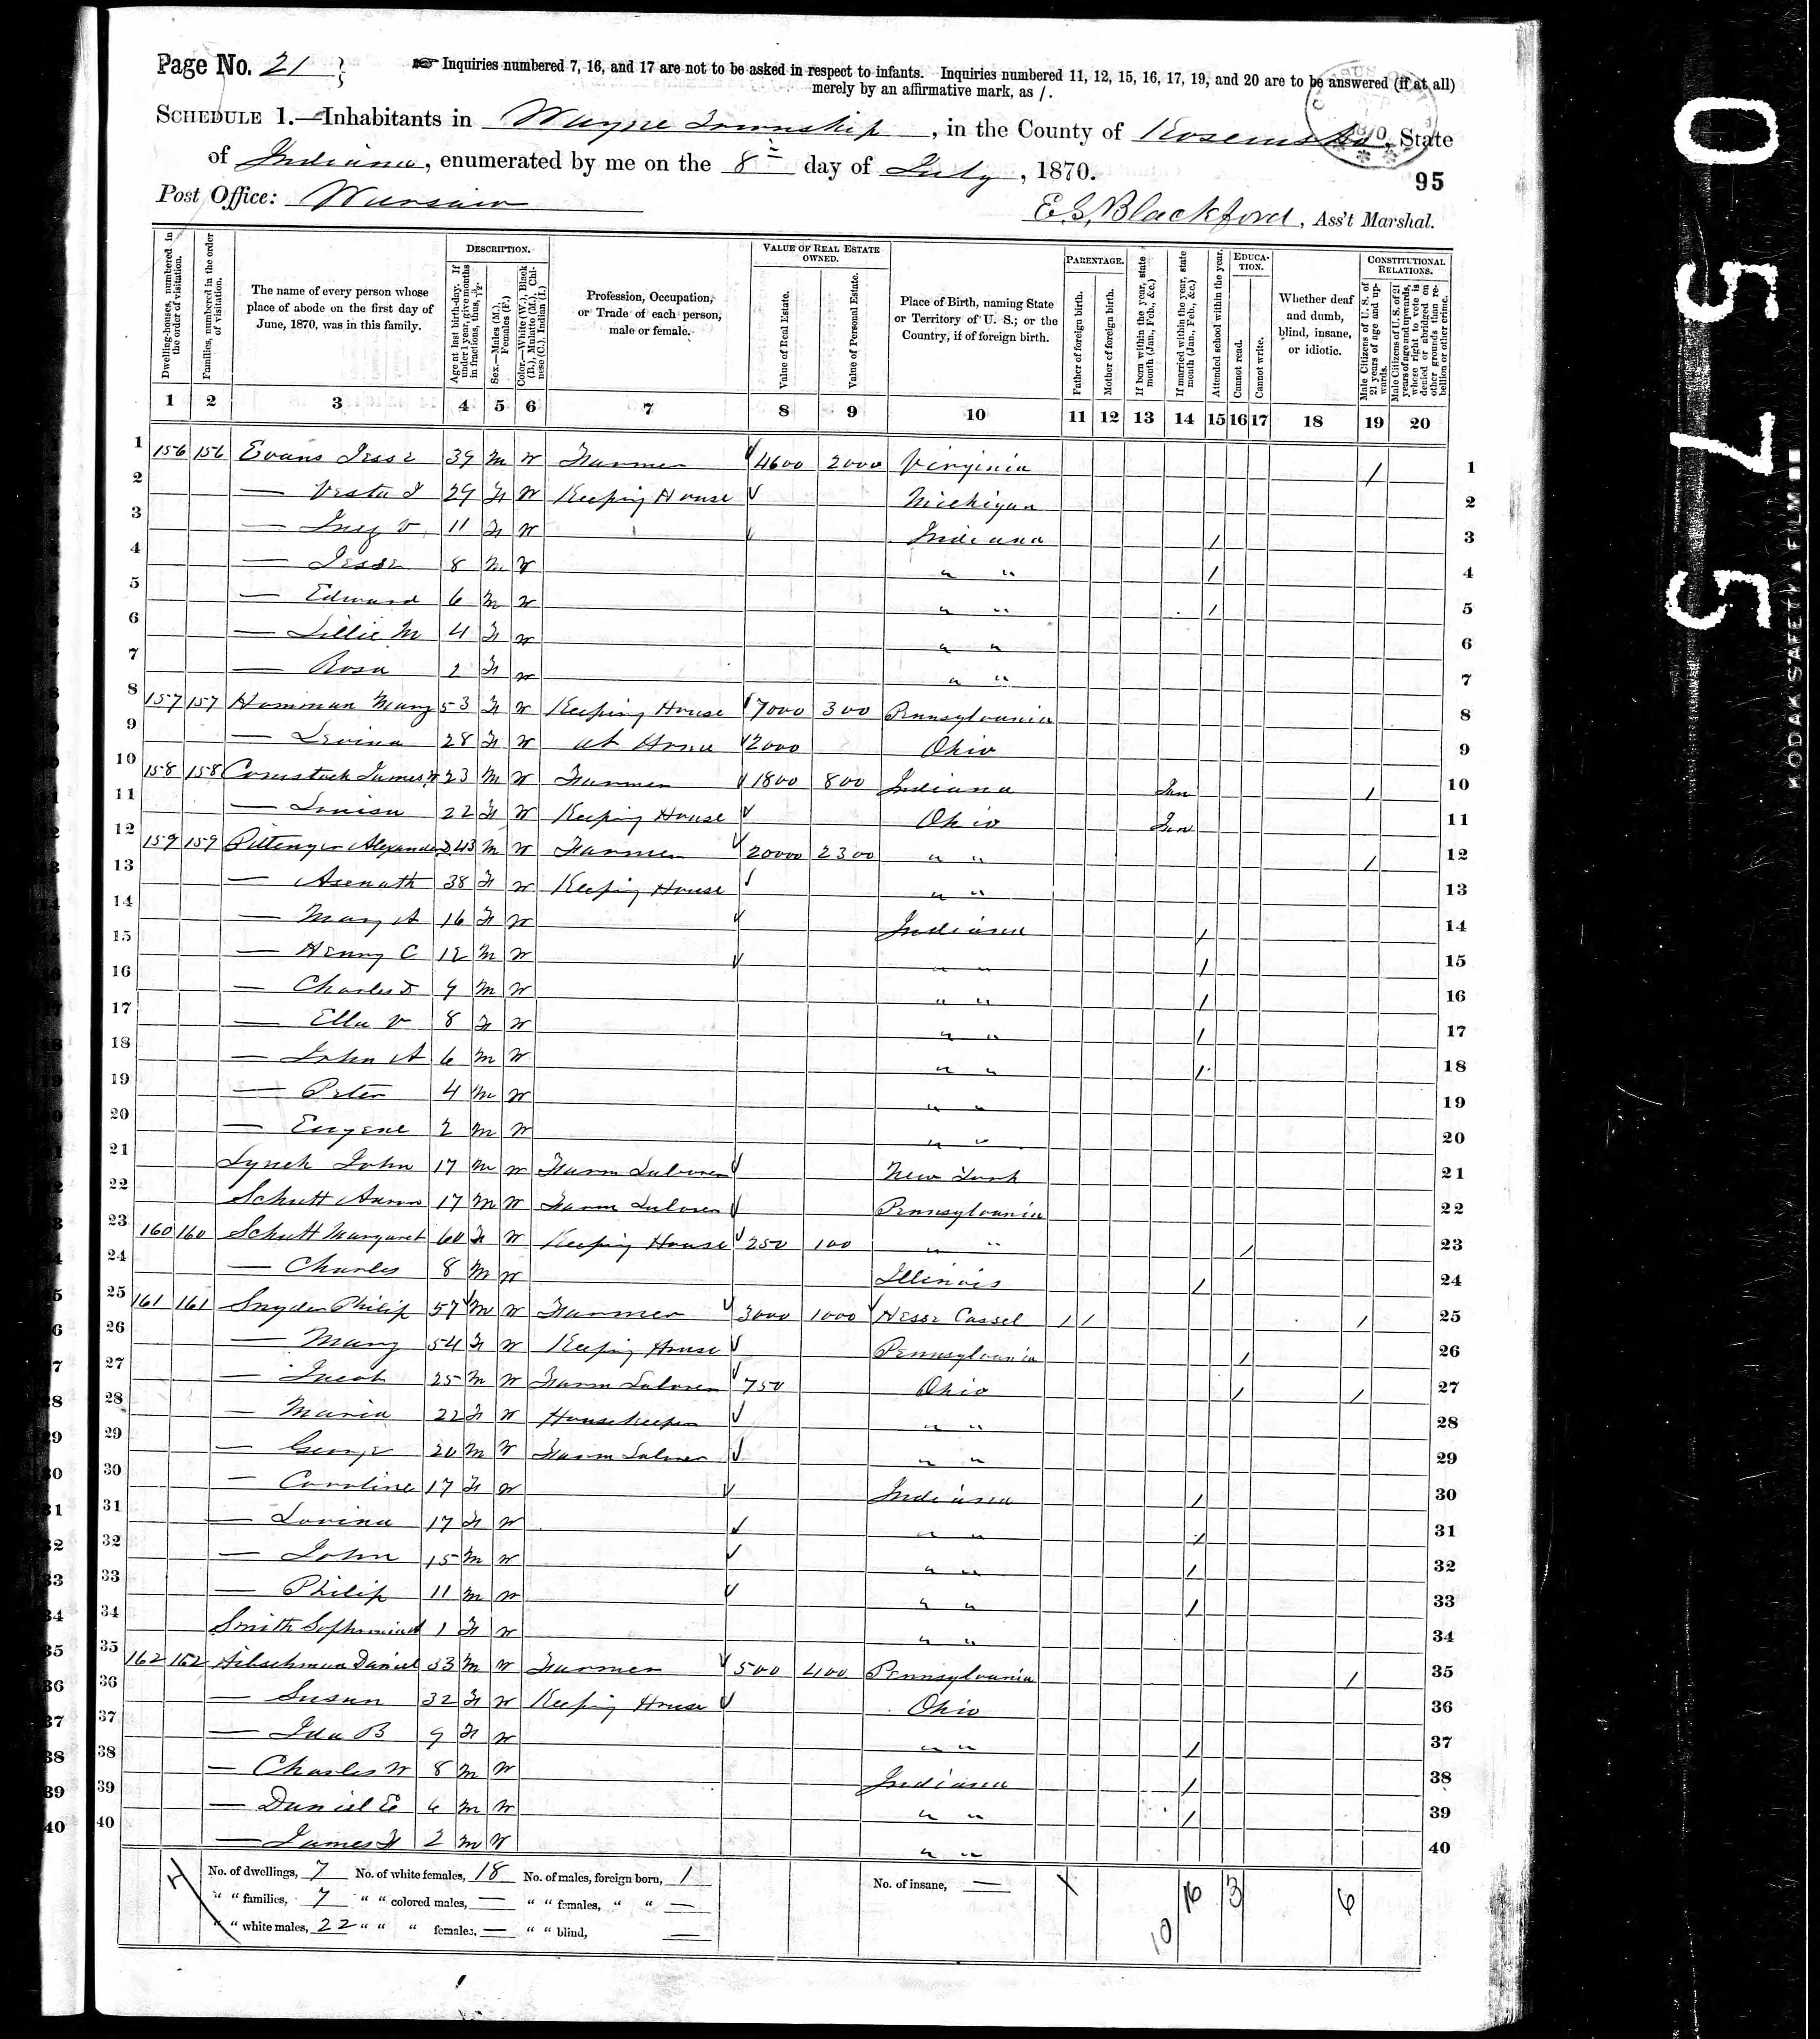 Page No. 21
☞ Inquiries numbered 7, 16, and 17 are not to be asked in respect to infants. Inquiries numbered 11, 12, 15, 16, 17, 19, and 20 are to be answered (if at all)
merely by an affirmative mark, as /.
SCHEDULE 1.—Inhabitants in Wayne Township, in the County of Kosciusko, State
of Indiana, enumerated by me on the 8th day of July, 1870.
95
Post Office: Warsaw
E.S. Blackford, Ass't Marshal.
Dwelling-houses, numbered in the order of visitation.
Families, numbered in the order of visitation.
The name of every person whose place of abode on the first day of June, 1870, was in this family.
DESCRIPTION.
Age at last birth-day. If under 1 year, give months in fractions, thus, 3/12.
Sex.—Males (M.), Females (F.)
Color.—White (W.), Black (B.), Mulatto (M.), Chinese (C.), Indian (I.)
Profession, Occupation, or Trade of each person, male or female.
VALUE OF REAL ESTATE OWNED.
Value of Real Estate.
Value of Personal Estate.
Place of Birth, naming State or Territory of U. S.; or the Country, if of foreign birth.
PARENTAGE.
Father of foreign birth.
Mother of foreign birth.
If born within the year, state month (Jan., Feb., &c.)
If married within the year, state month (Jan., Feb., &c.)
EDUCATION.
Attended school within the year.
Cannot read.
Cannot write.
Whether deaf and dumb, blind, insane, or idiotic.
CONSTITUTIONAL RELATIONS.
Male Citizens of U. S. of 21 years of age and upwards.
Male Citizens of U. S. of 21 years of age and upwards, whose right to vote is denied or abridged on other grounds than rebellion or other crime.
1 2 3 4 5 6 7 8 9 10 11 12 13 14 15 16 17 18 19 20
1 156 156 Evans Jesse 39 M W Farmer 4600 2000 Virginia / 1
2 — Vesta J 29 F W Keeping House Michigan 2
3 — Inez V 11 F W Indiana / 3
4 — Jesse 8 M W " " / 4
5 — Edward 6 M W " " / 5
6 — Lillie M 4 F W " " 6
7 — Rosa 2 F W " " 7
8 157 157 Hamman Mary 53 F W Keeping House 7000 300 Pennsylvania 8
9 — Levina 28 F W at Home 2000 Ohio 9
10 158 158 Comstock James 23 M W Farmer 1800 800 Indiana Jan / 10
11 — Louisa 22 F W Keeping House Ohio Jan 11
12 159 159 Pittenger Alexander D 43 M W Farmer 20000 2300 " " / 12
13 — Asenath 38 F W Keeping House " " 13
14 — Mary A 16 F W Indiana / 14
15 — Henry C 12 M W " " / 15
16 — Charles D 9 M W " " / 16
17 — Ella V 8 F W " " / 17
18 — John A 6 M W " " / 18
19 — Peter 4 M W " " 19
20 — Eugene 2 M W " " 20
21 Lynch John 17 M W Farm Laborer New York 21
22 Schutt Aaron 17 M W Farm Laborer Pennsylvania 22
23 160 160 Schutt Margaret 60 F W Keeping House 250 100 " " / 23
24 — Charles 8 M W Illinois / 24
25 161 161 Snyder Philip 57 M W Farmer 3000 1000 Hesse Cassel / / / 25
26 — Mary 54 F W Keeping House Pennsylvania / 26
27 — Jacob 25 M W Farm Laborer 750 Ohio / / 27
28 — Maria 22 F W Housekeeper " " 28
29 — George 20 M W Farm Laborer " " 29
30 — Caroline 17 F W Indiana / 30
31 — Lovina 17 F W " " / 31
32 — John 15 M W " " / 32
33 — Philip 11 M W " " / 33
34 Smith 1 F W " " 34
35 162 162 Hibschman Daniel 33 M W Farmer 500 400 Pennsylvania / 35
36 — Susan 32 F W Keeping House Ohio 36
37 — Ida B 9 F W " " / 37
38 — Charles W 8 M W Indiana / 38
39 — Daniel E 6 M W " " / 39
40 — James F 2 M W " " 40
No. of dwellings, 7 No. of white females, 18 No. of males, foreign born, 1 No. of insane, — 1 16 3 6
" " families, 7 " " colored males, — " " females, " " —
" " white males, 22 " " " females, — " " blind, — 10
0575
KODAK SAFETY FILM